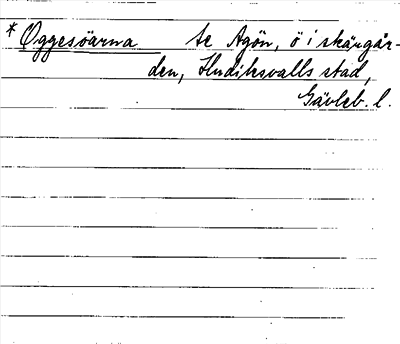 * Oggesöarna se Agön, ö i skärgår-
den, Hudiksvalls stad,
Gävleb. l.